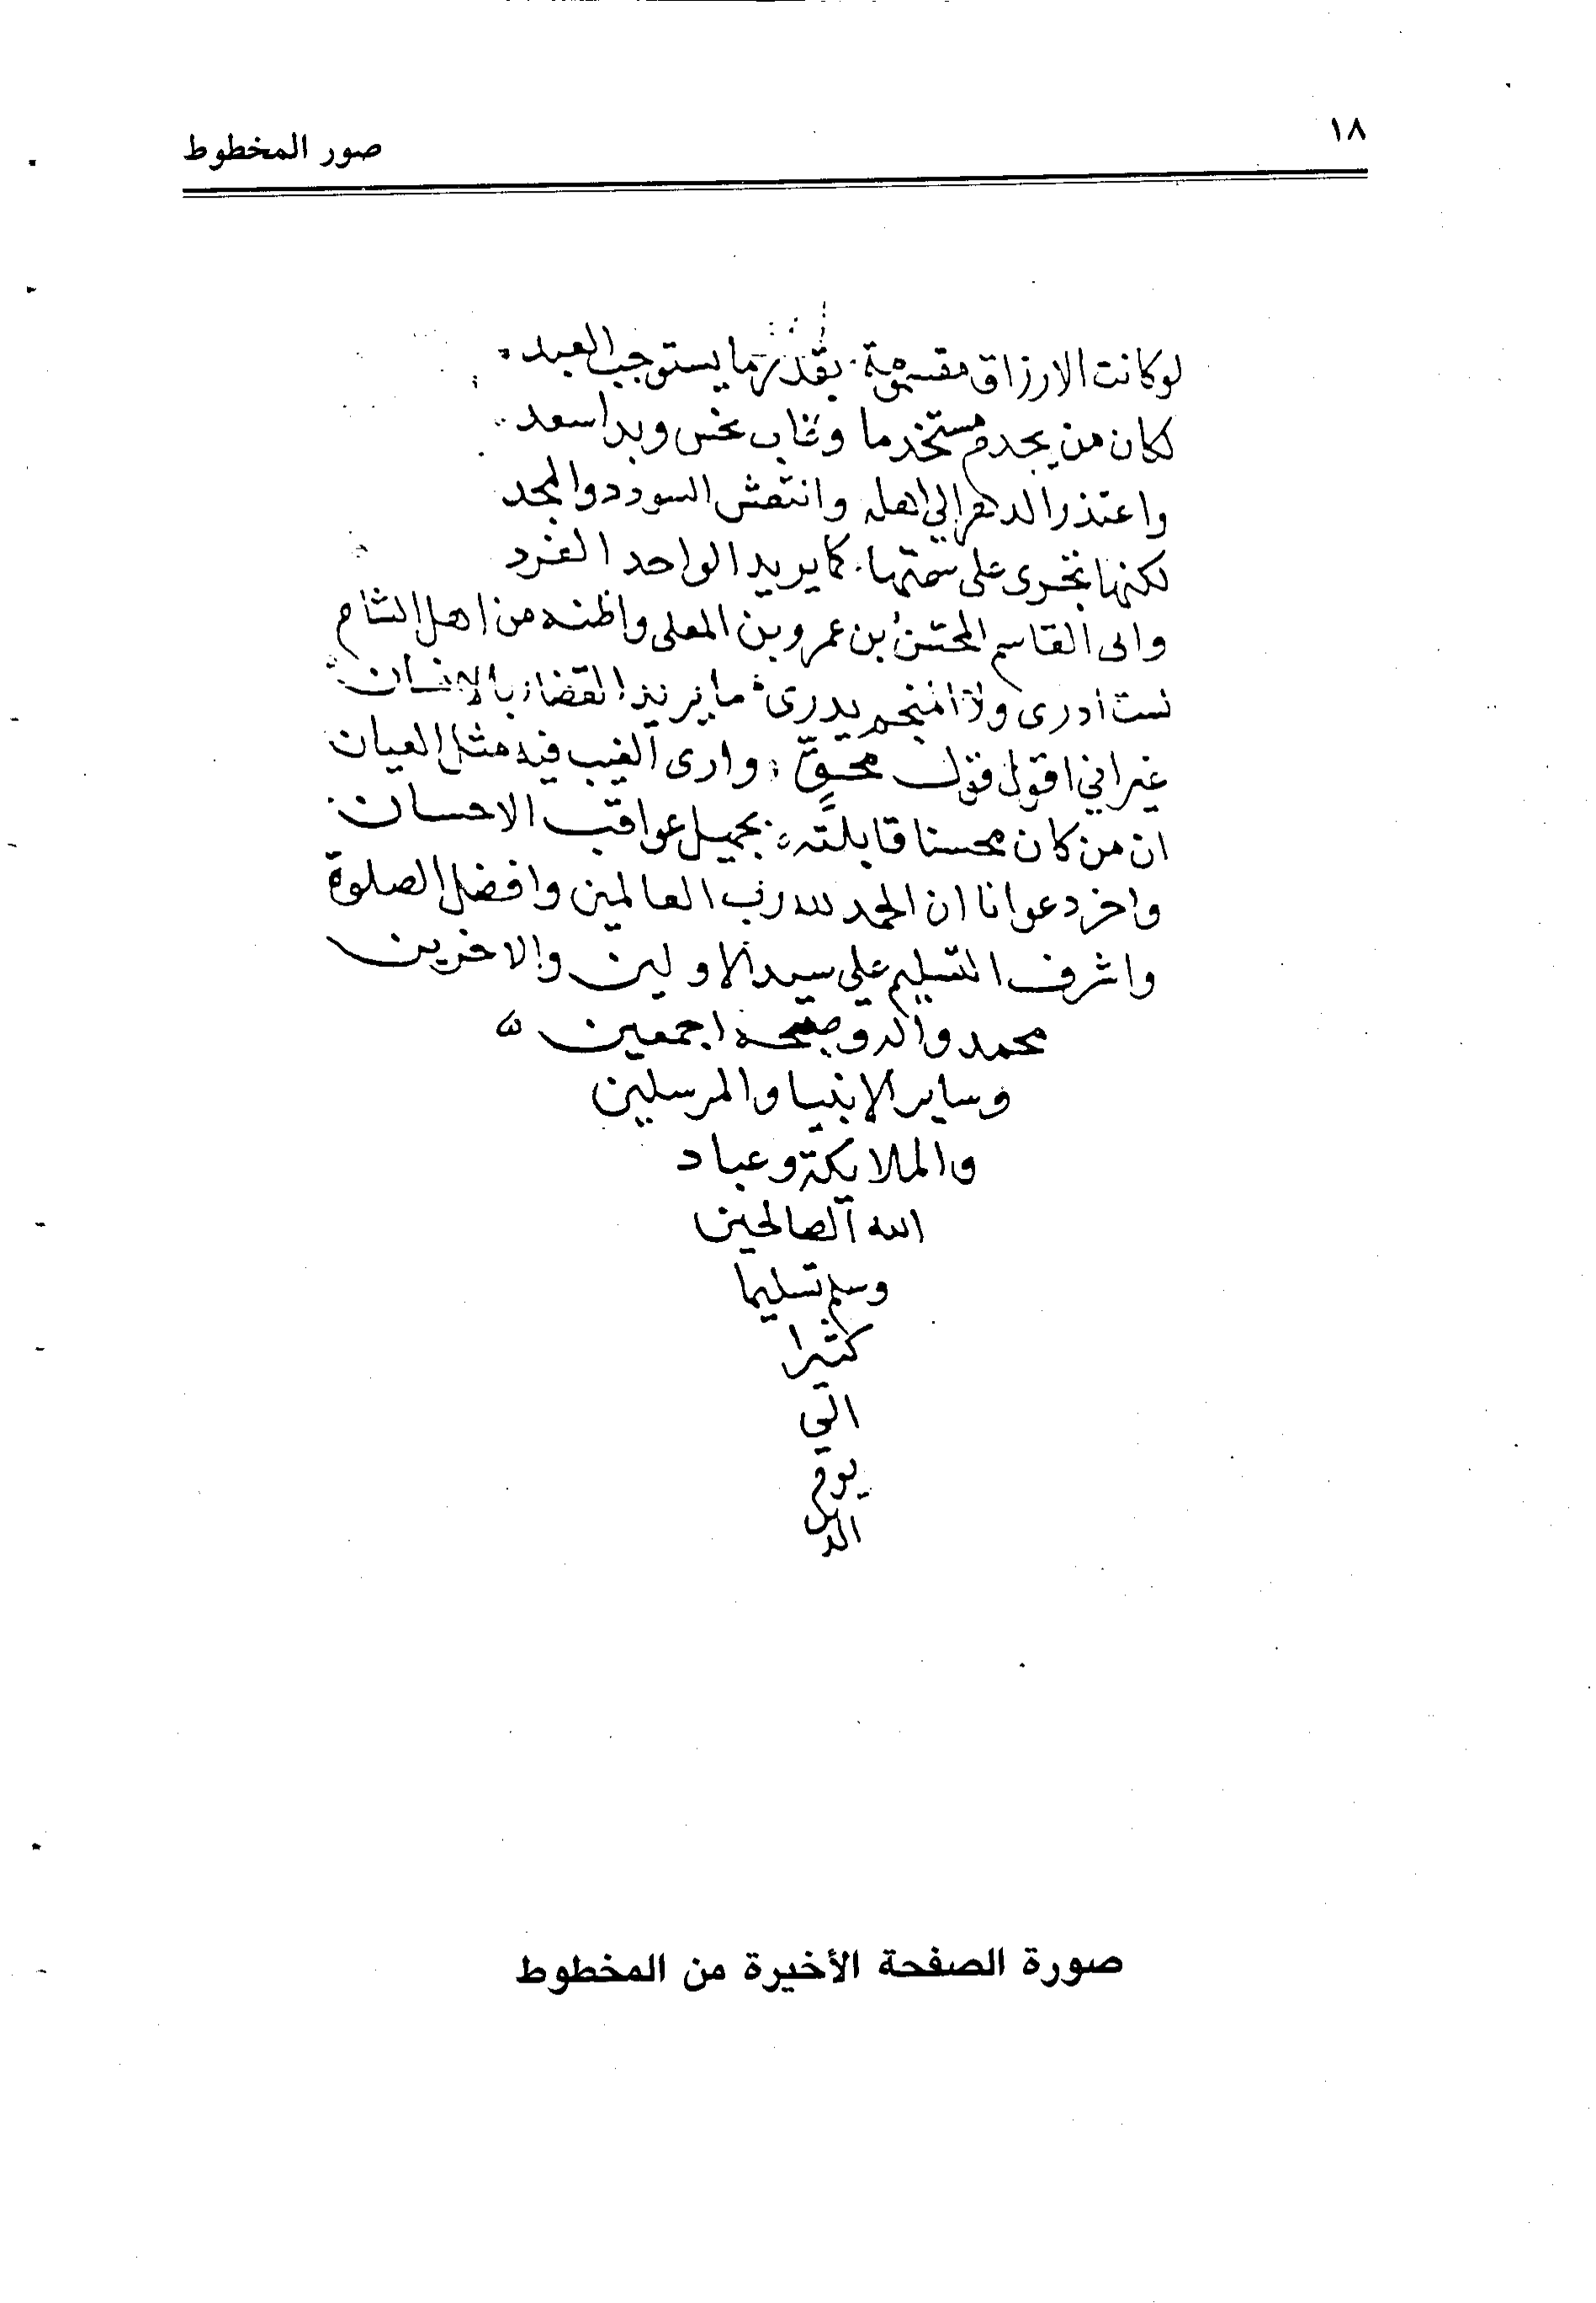 ١٨
صور المخطوط
لو كانت الارزاق مقسومة بقدر ما يستوجب العبد
لكان من يجدم مستخدما وغاب نحس وبدا سعد
واعتذر الدهر الى اهله وانتعش السودد والمجد
لكنها تجرى على سمتها كما يريد الواحد الفرد
وابى القاسم المحسن بن عمرو بن المعلى واظنه من اهل الشام
لست ادرى ولا المنجم يدرى ما يريد القضاء بالانسان
غير اني اقول قول محق وارى الغيب فيه مثل العيان
ان من كان محسنا قابلته بجميل عواقب الاحسان
واخر دعوانا ان الحمد لله رب العالمين وافضل الصلوة
واشرف التسليم على سيد الاولين والاخرين
محمد واله وصحبه اجمعين
وساير الانبيا والمرسلين
والملايكة وعباد
الله الصالحين
وسلم تسليما
كثيرا
الى
يوم
الدين
صورة الصفحة الأخيرة من المخطوط